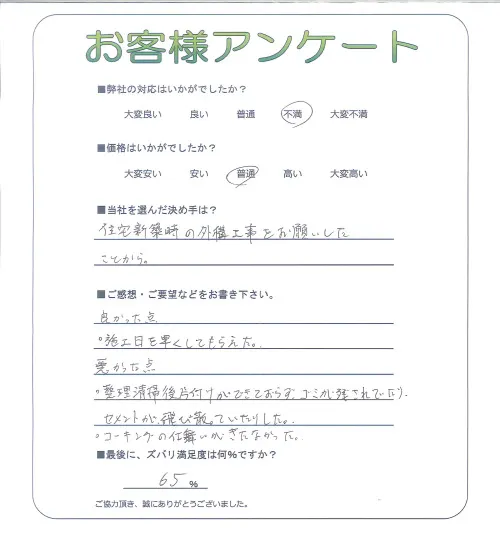 お客様アンケート
■弊社の対応はいかがでしたか？
大変良い 良い 普通 不満 大変不満
■価格はいかがでしたか？
大変安い 安い 普通 高い 大変高い
■当社を選んだ決め手は？
住宅新築時の外構工事をお願いした
ことから。
■ご感想・ご要望などをお書き下さい。
良かった点
・施工日を早くしてもらえた。
悪かった点
・整理清掃後片付けができておらず、ゴミが残されてたり、
セメントが飛び散っていたりした。
・コーキングの仕舞いがきたなかった。
■最後に、ズバリ満足度は何%ですか？
65 %
ご協力頂き、誠にありがとうございました。